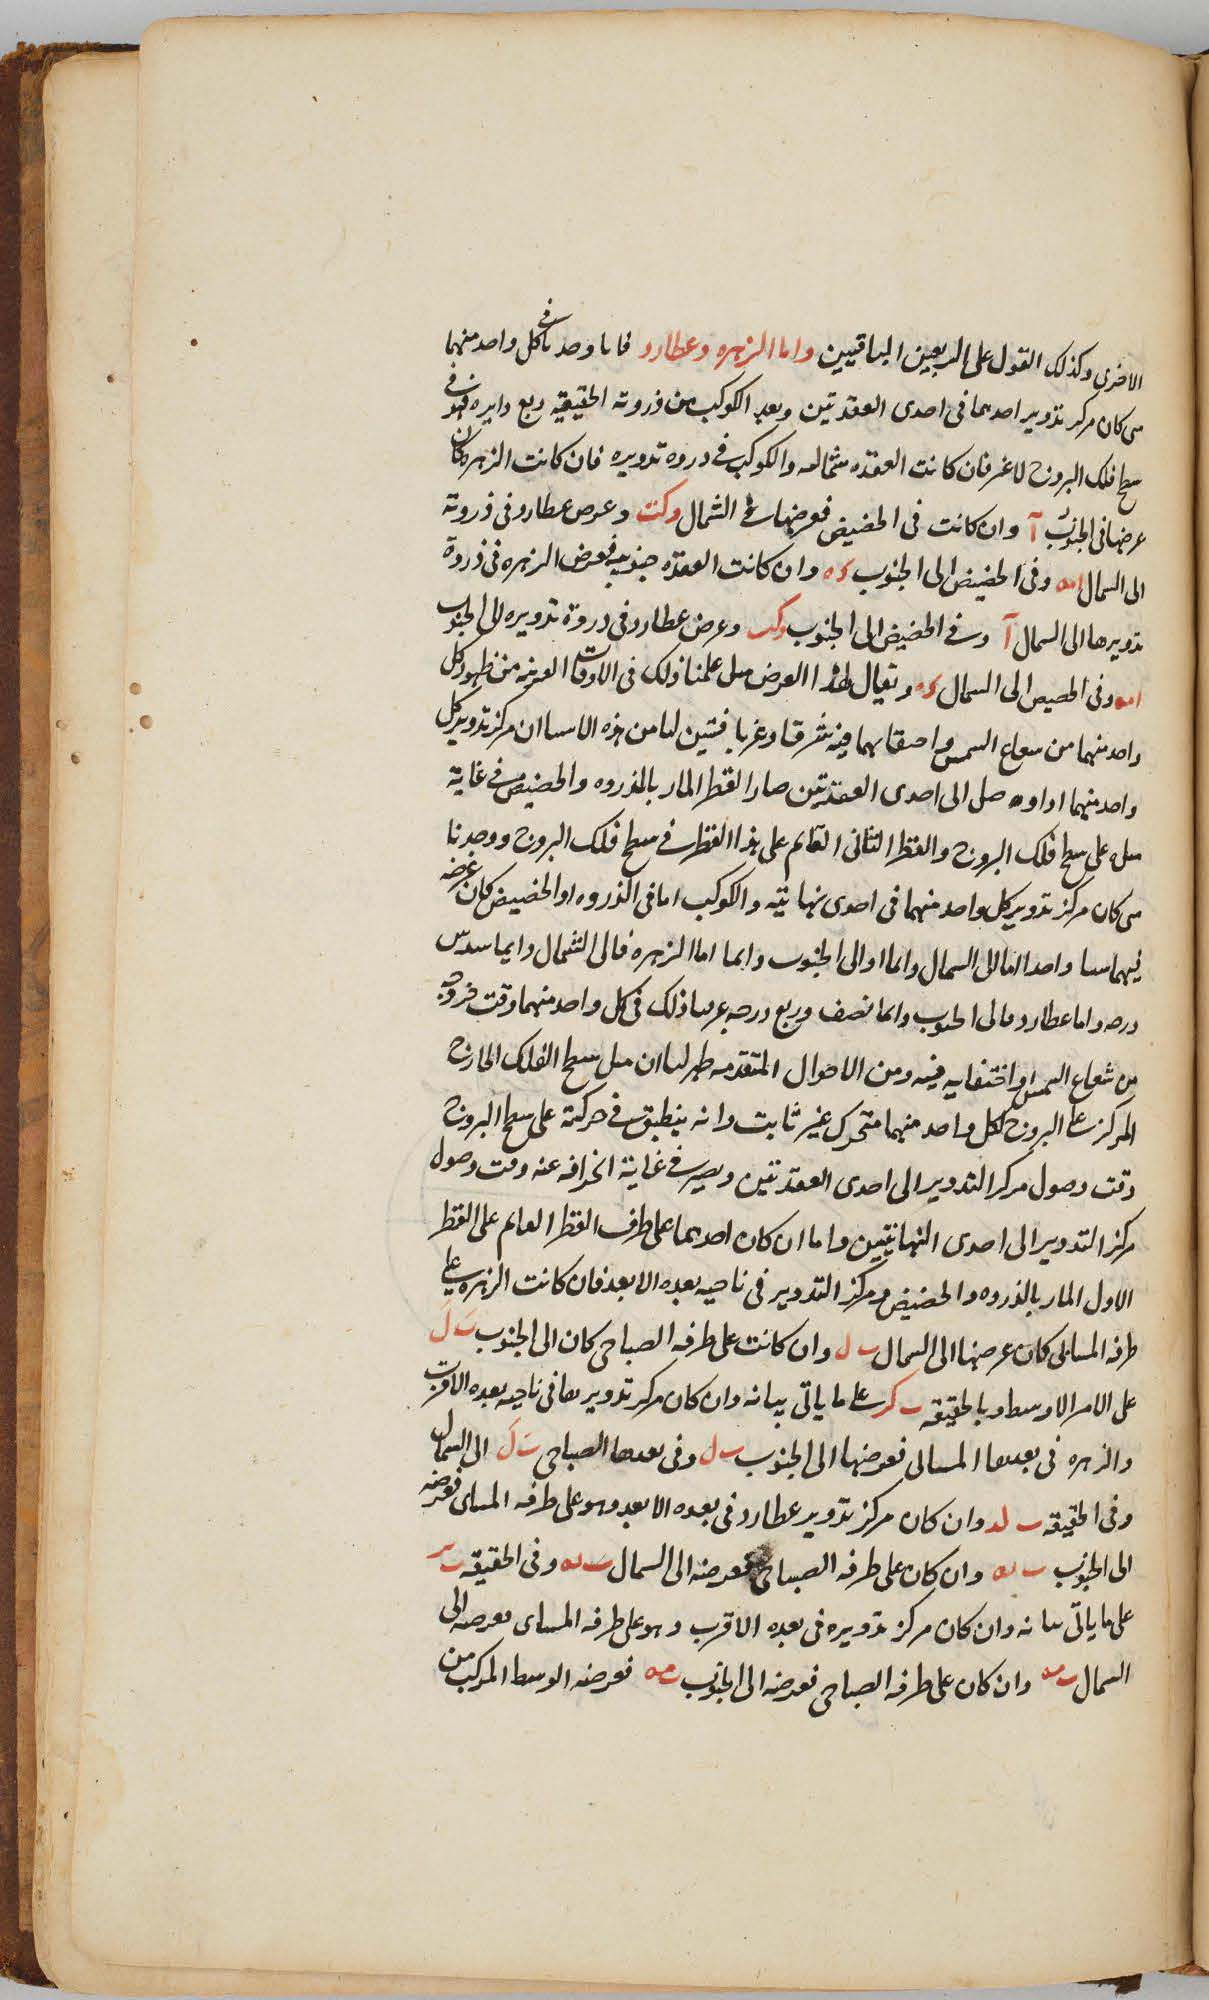 الاخرى وكذلك القول على الربعين الباقيين واما الزهره وعطارد فانا وجدنا فى كل واحد منهما
متى كان مركز تدوير احدهما فى احدى العقدتين وبعد الكوكب من ذروته الحقيقيه ربع دايره فهو فى
سطح فلك البروج لا غير فان كانت العقده شماليه والكوكب فى ذروه تدويره فان كانت الزهره كان
عرضها فى الجنوب آ وان كانت فى الحضيض فعرضها فى الشمال وكت وعرض عطارد فى ذروته
الى السمال امه وفى الحضيض الى الجنوب ده وان كانت العقده جنوبيه فعرض الزهره فى ذروة
تدويرها الى السمال آ وفى الحضيض الى الجنوب وكب وعرض عطارد فى دروة تدويره الى الجنوب
امه وفى الحضيض الى السمال ده ويقال لهذا العرض ميل علمنا ذلك فى الاوقات القريبه من ظهور كل
واحد منهما من سعاع السمس واحتفايهما فيه شرقا وغربا فتبين لنا من هذه الاسيا ان مركز تدوير كل
واحد منهما اذا وصل الى احدى العقدتين صار القطر المار بالذروه والحضيض فى غاية
ميله على سطح فلك البروج والقطر الثانى القايم على هذا القطر فى سطح فلك البروج ووجدنا
متى كان مركز تدوير كل واحد منهما فى احدى نهايتيه والكوكب اما فى الذروه او الحضيض كان عرضه
فيهما شيا واحدا اما الى السمال دايما او الى الجنوب دايما اما الزهره فالى الشمال دايما سدس
درجه واما عطارد فالى الجنوب دايما نصف وربع درجه عرفنا ذلك فى كل واحد منهما وقت خروجه
من شعاع السمس واختفايه فيه ومن الاحوال المتقدمه ظهر لنا ان ميل سطح الفلك الخارج
المركز على البروج لكل واحد منهما متحرك غير ثابت وانه ينطبق فى حركته على سطح البروج
وقت وصول مركز التدوير الى احدى العقدتين ويصير فى غاية انحرافه عنه وقت وصول
مركز التدوير الى احدى النهايتين واما ان كان احدهما على طرف القطر القايم على القطر
الاول المار بالذروه والحضيض ومركز التدوير فى ناحيه بعده الابعد فان كانت الزهره على
طرفه المسايى كان عرضها الى السمال ب ل وان كانت على طرفه الصباحى كان الى الجنوب ب ل
على الامر الاوسط وبالحقيقه ب كر على ما ياتى بيانه وان كان مركز تدويرها فى ناحيه بعده الاقرب
والزهره فى بعدها المسايى فعرضها الى الجنوب ب ل وفى بعدها الصباحى ب ل الى السمال
وفى الحقيقه ب لد وان كان مركز تدوير عطارد فى بعده الابعد وهو على طرفه المساى فعرضه
الى الجنوب ب يه وان كان على طرفه الصباحى فعرضه الى السمال ب يه وفى الحقيقه
على ما ياتى بيانه وان كان مركز تدويره فى بعده الاقرب وهو على طرفه المساى فعرضه الى
السمال ب مه وان كان على طرفه الصباحى فعرضه الى الجنوب ب مه فعرضه الوسط المركب من